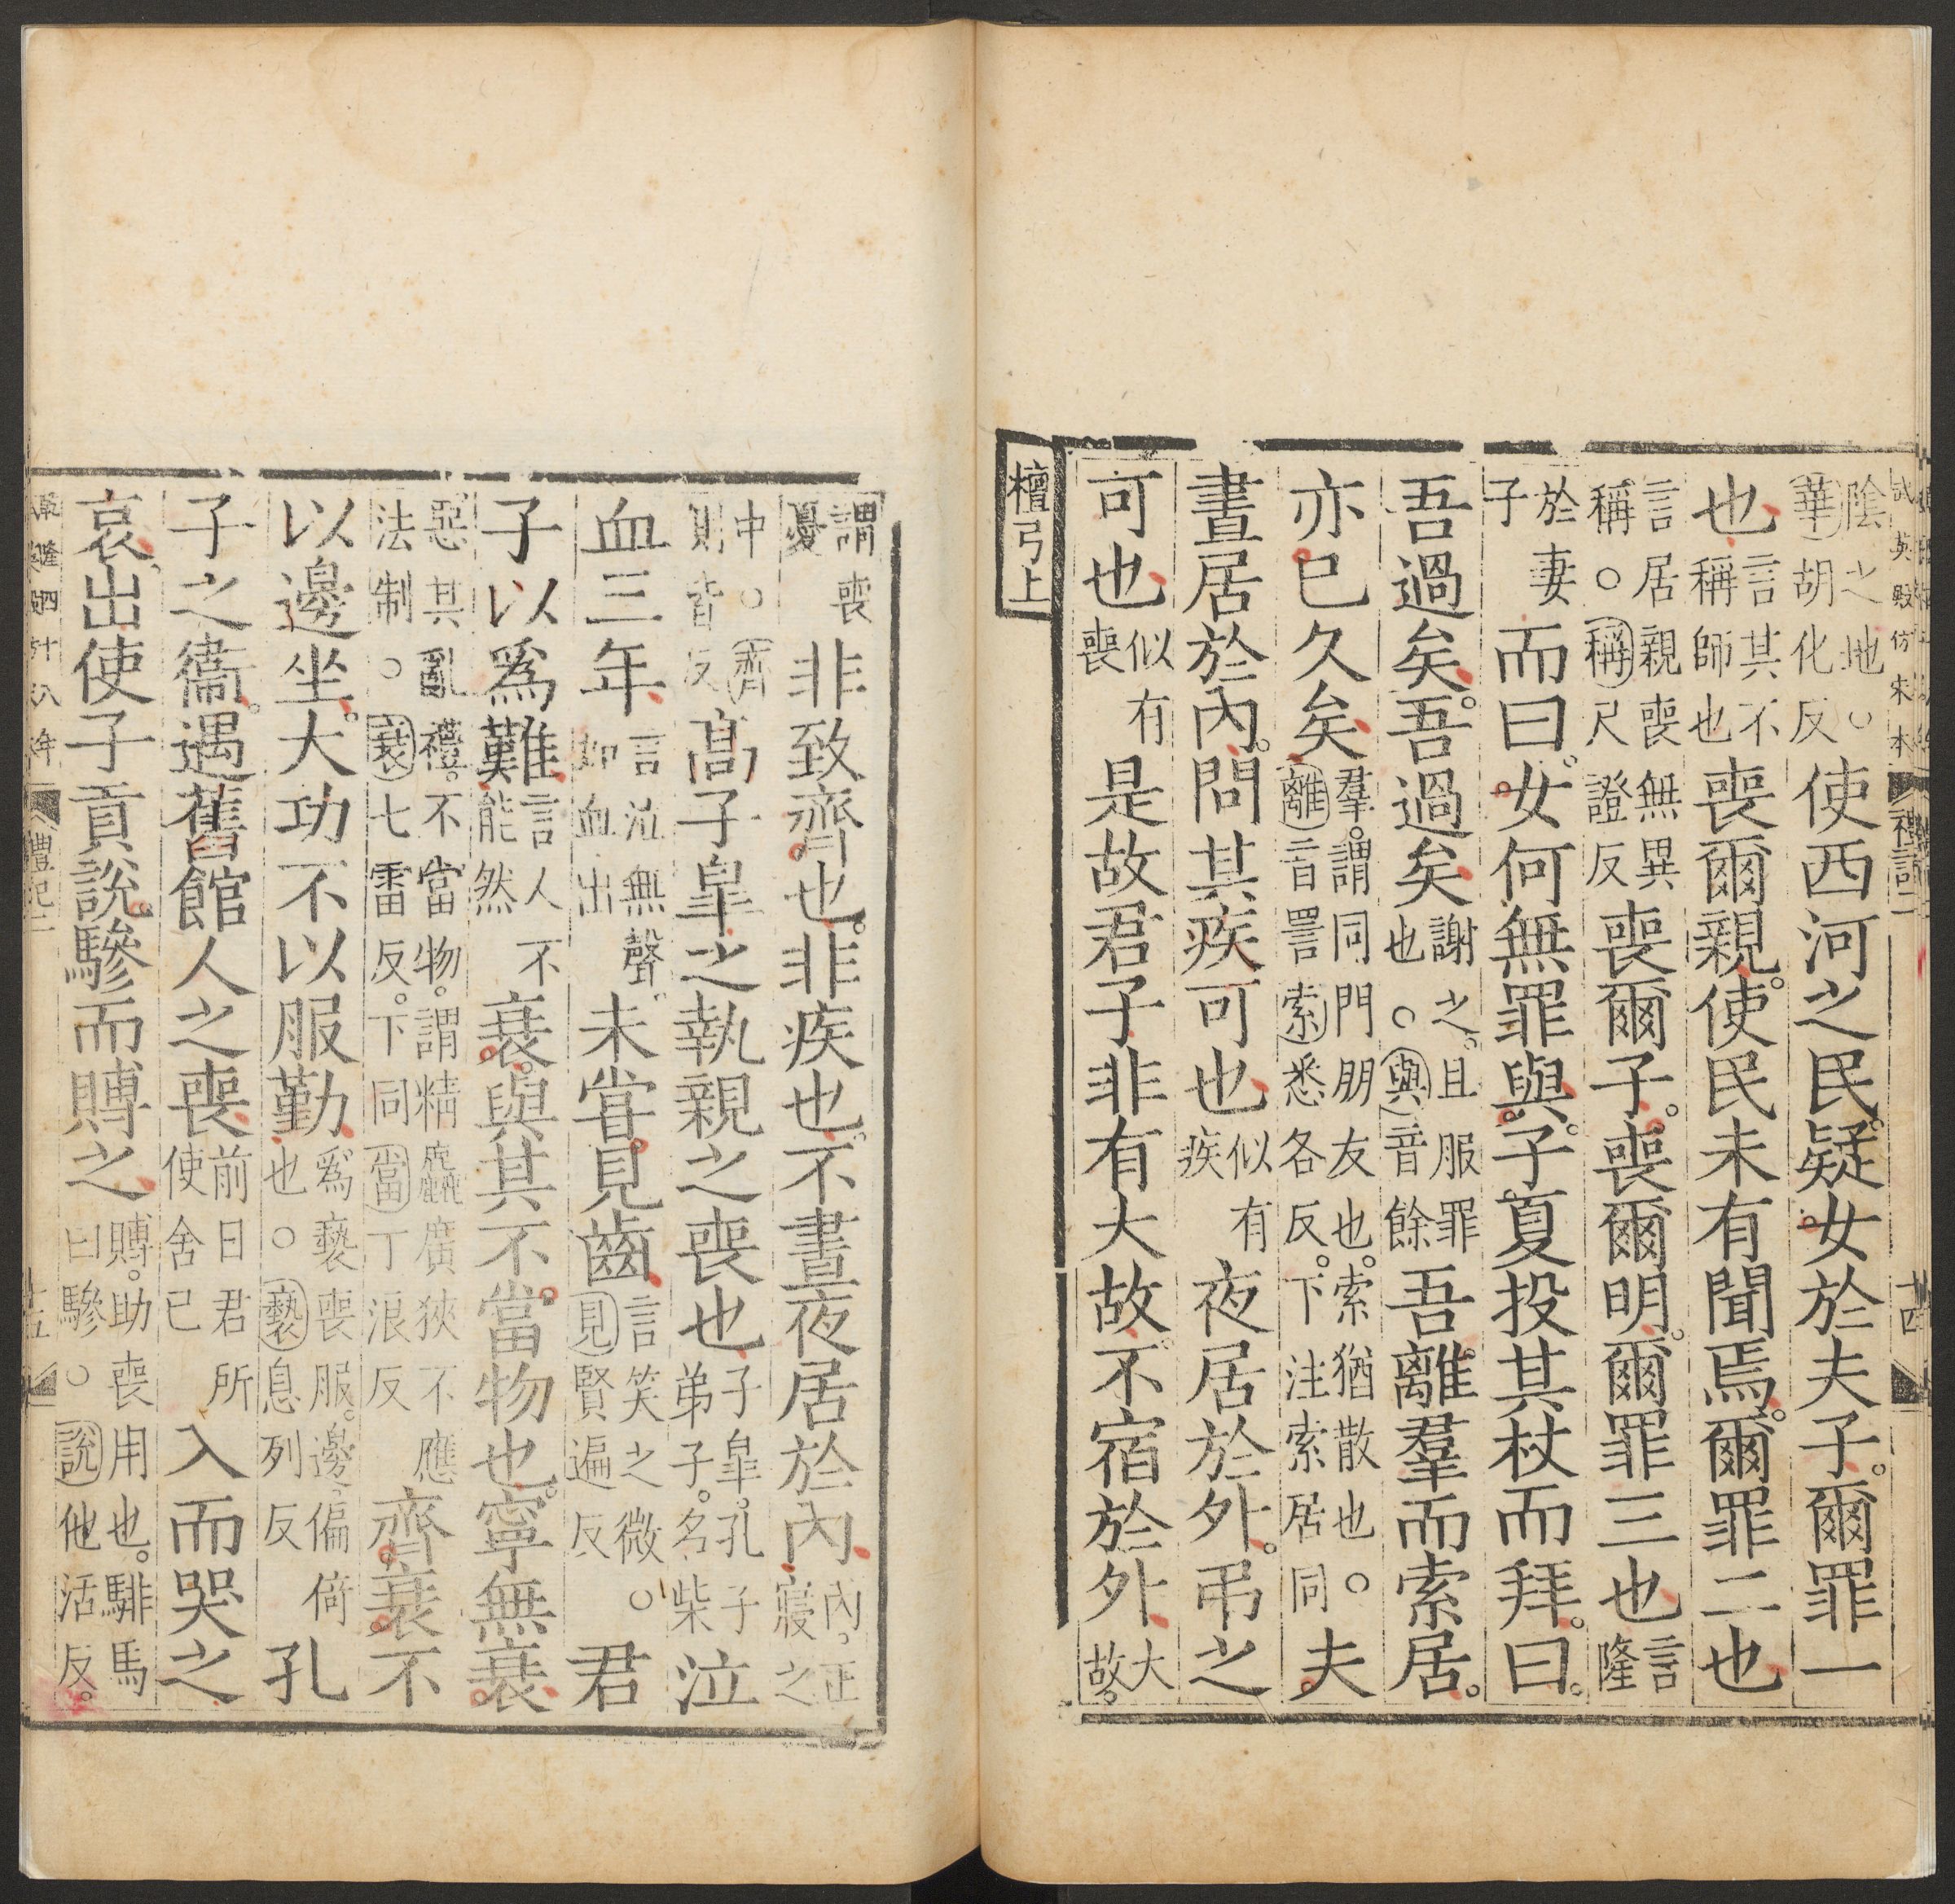 武英殿仿宋本 禮記二 十四
陰之地○華胡化反使西河之民疑女於夫子。爾罪一
也言其不稱師也喪爾親。使民未有聞焉。爾罪二也
言居親喪無異稱○稱尺證反喪爾子。喪爾明。爾罪三也言隆
於妻子而曰。女何無罪與。子夏投其杖而拜。曰。
吾過矣。吾過矣謝之。且服罪也○與音餘吾離羣而索居。
亦已久矣羣。謂同門朋友也。索猶散也○離音詈索悉各反。下注索居同夫
晝居於內。問其疾可也似有疾夜居於外。弔之
可也似有喪是故君子非有大故。不宿於外大故。
檀弓上
謂喪憂非致齊也。非疾也。不晝夜居於內內。正寢之
中○齊側皆反高子皋之執親之喪也子皋。孔子弟子。名柴泣
血三年言泣無聲。如血出未嘗見齒言笑之微○見賢遍反君
子以爲難言人不能然衰。與其不當物也。寧無衰
惡其亂禮。不當物。謂精麤廣狹不應法制○衰七雷反。下同當丁浪反齊衰不
以邊坐。大功不以服勤爲褻喪服。邊。偏倚也○褻息列反孔
子之衞。遇舊館人之喪前日君所使舍已入而哭之
哀。出使子貢說驂而賻之賻。助喪用也。騑馬曰驂○說他活反。
乾隆四十八年 禮記二 十五